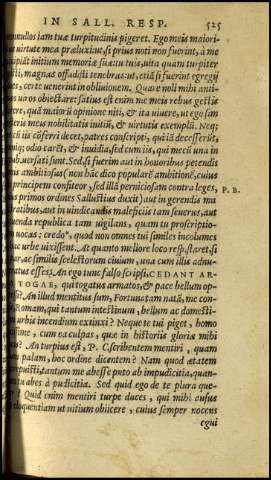 IN SALL. RESP. 525
nonnullos iam tuæ turpitudinis pigeret. Ego meis maiori-
bus uirtute mea præluxi: ut, si prius noti non fuerint, à me
accipiāt initium memoriæ suæ: tu tuis, uita quam turpiter
egisti, magnas offudisti tenebras: ut, etiā si fuerint egregij
ciues, certe uenerint in obliuionem. Quare noli mihi anti-
quos uiros obiectare: satius est enim me meis rebus gestis
florere, quàm maiorū opinione niti, & ita uiuere, ut ego sim
posteris meis nobilitatis initiū, & uirtutis exemplū. Neq;
me cū iis cōferri decet, patres conscripti, qui iā decesserūt,
omniq; odio carēt, & inuidia, sed cum iis, qui mecū una in
rep. uersati sunt. Sed, si fuerim aut in honoribus petendis
nimis ambitiosus (non hāc dico popularē ambitionē, cuius
me principem confiteor, sed illā perniciosam contra leges, P. B.
cuius primos ordines Sallustius duxit) aut in gerendis ma
gistratibus, aut in uindicandis maleficiis tam seuerus, aut
in tuenda republica tam uigilans, quam tu proscriptio-
nem uocas: credo, quod non omnes tui similes incolumes
in hac urbe uixissent. At quanto meliore loco resp. staret, si
tu par, ac similis scelestorum ciuium, una cum illis adnu-
meratus esses? An ego tunc falso scripsi, CEDANT AR-
MA TOGAE, qui togatus armatos, & pace bellum op-
pressi? An illud mentitus sum, Fortunatam natā, me con-
sule Romam, qui tantum intestinum, bellum ac domesti-
cum urbis incendium extinxi? Neque te tui piget, homo
leuissime, cum ea culpas, quæ in historiis gloriæ mihi
ducis? An turpius est, P. C. scribentem mentiri, quam
illum palam, hoc ordine dicentem? Nam quod ætatem
increpuisti, tantum me abesse puto ab impudicitia, quan-
tum tu abes à pudicitia. Sed quid ego de te plura que-
rar? Quid enim mentiri turpe duces, qui mihi ausus
sis eloquentiam ut uitium obiicere, cuius semper nocens
egui